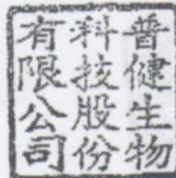 普健生物
科技股份
有限公司